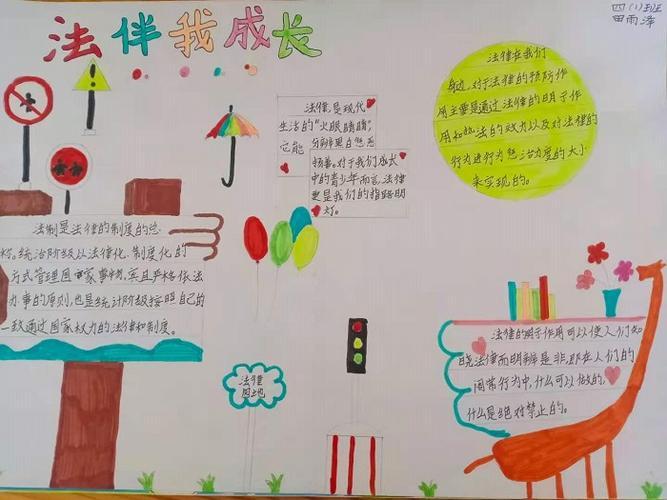 法伴我成长
四(1)班
田雨泽
法律,是现代
生活的“火眼睛睛”,
它能分辨是白悠恶
扬善。对于我们成长
中的青少年而言,法律
更是我们的指路明
灯。
法律在我们
身边,对于法律的预防作
用主要是通过法律的明示作
用和执法的效力以及对法律的
行为进行为惩治力度的大小
来实现的。
法制是法律的制度的总
称。统治阶级以法律化、制度化的
方式管理国家事务,实且严格依法
办事的原则,也是统计阶级按照自己的
一致通过国家权力的法律和制度。
法律
园地
法律的明示作用可以使人们知
晓法律而明辨是非,即在人们的
闹常行为中,什么可以做的,
什么是绝对禁止的。